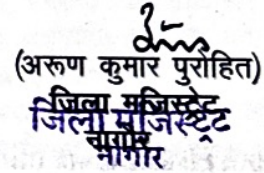 (अरुण कुमार पुरोहित)
जिला मजिस्ट्रेट
जिला मजिस्ट्रेट
नागौर
नागौर